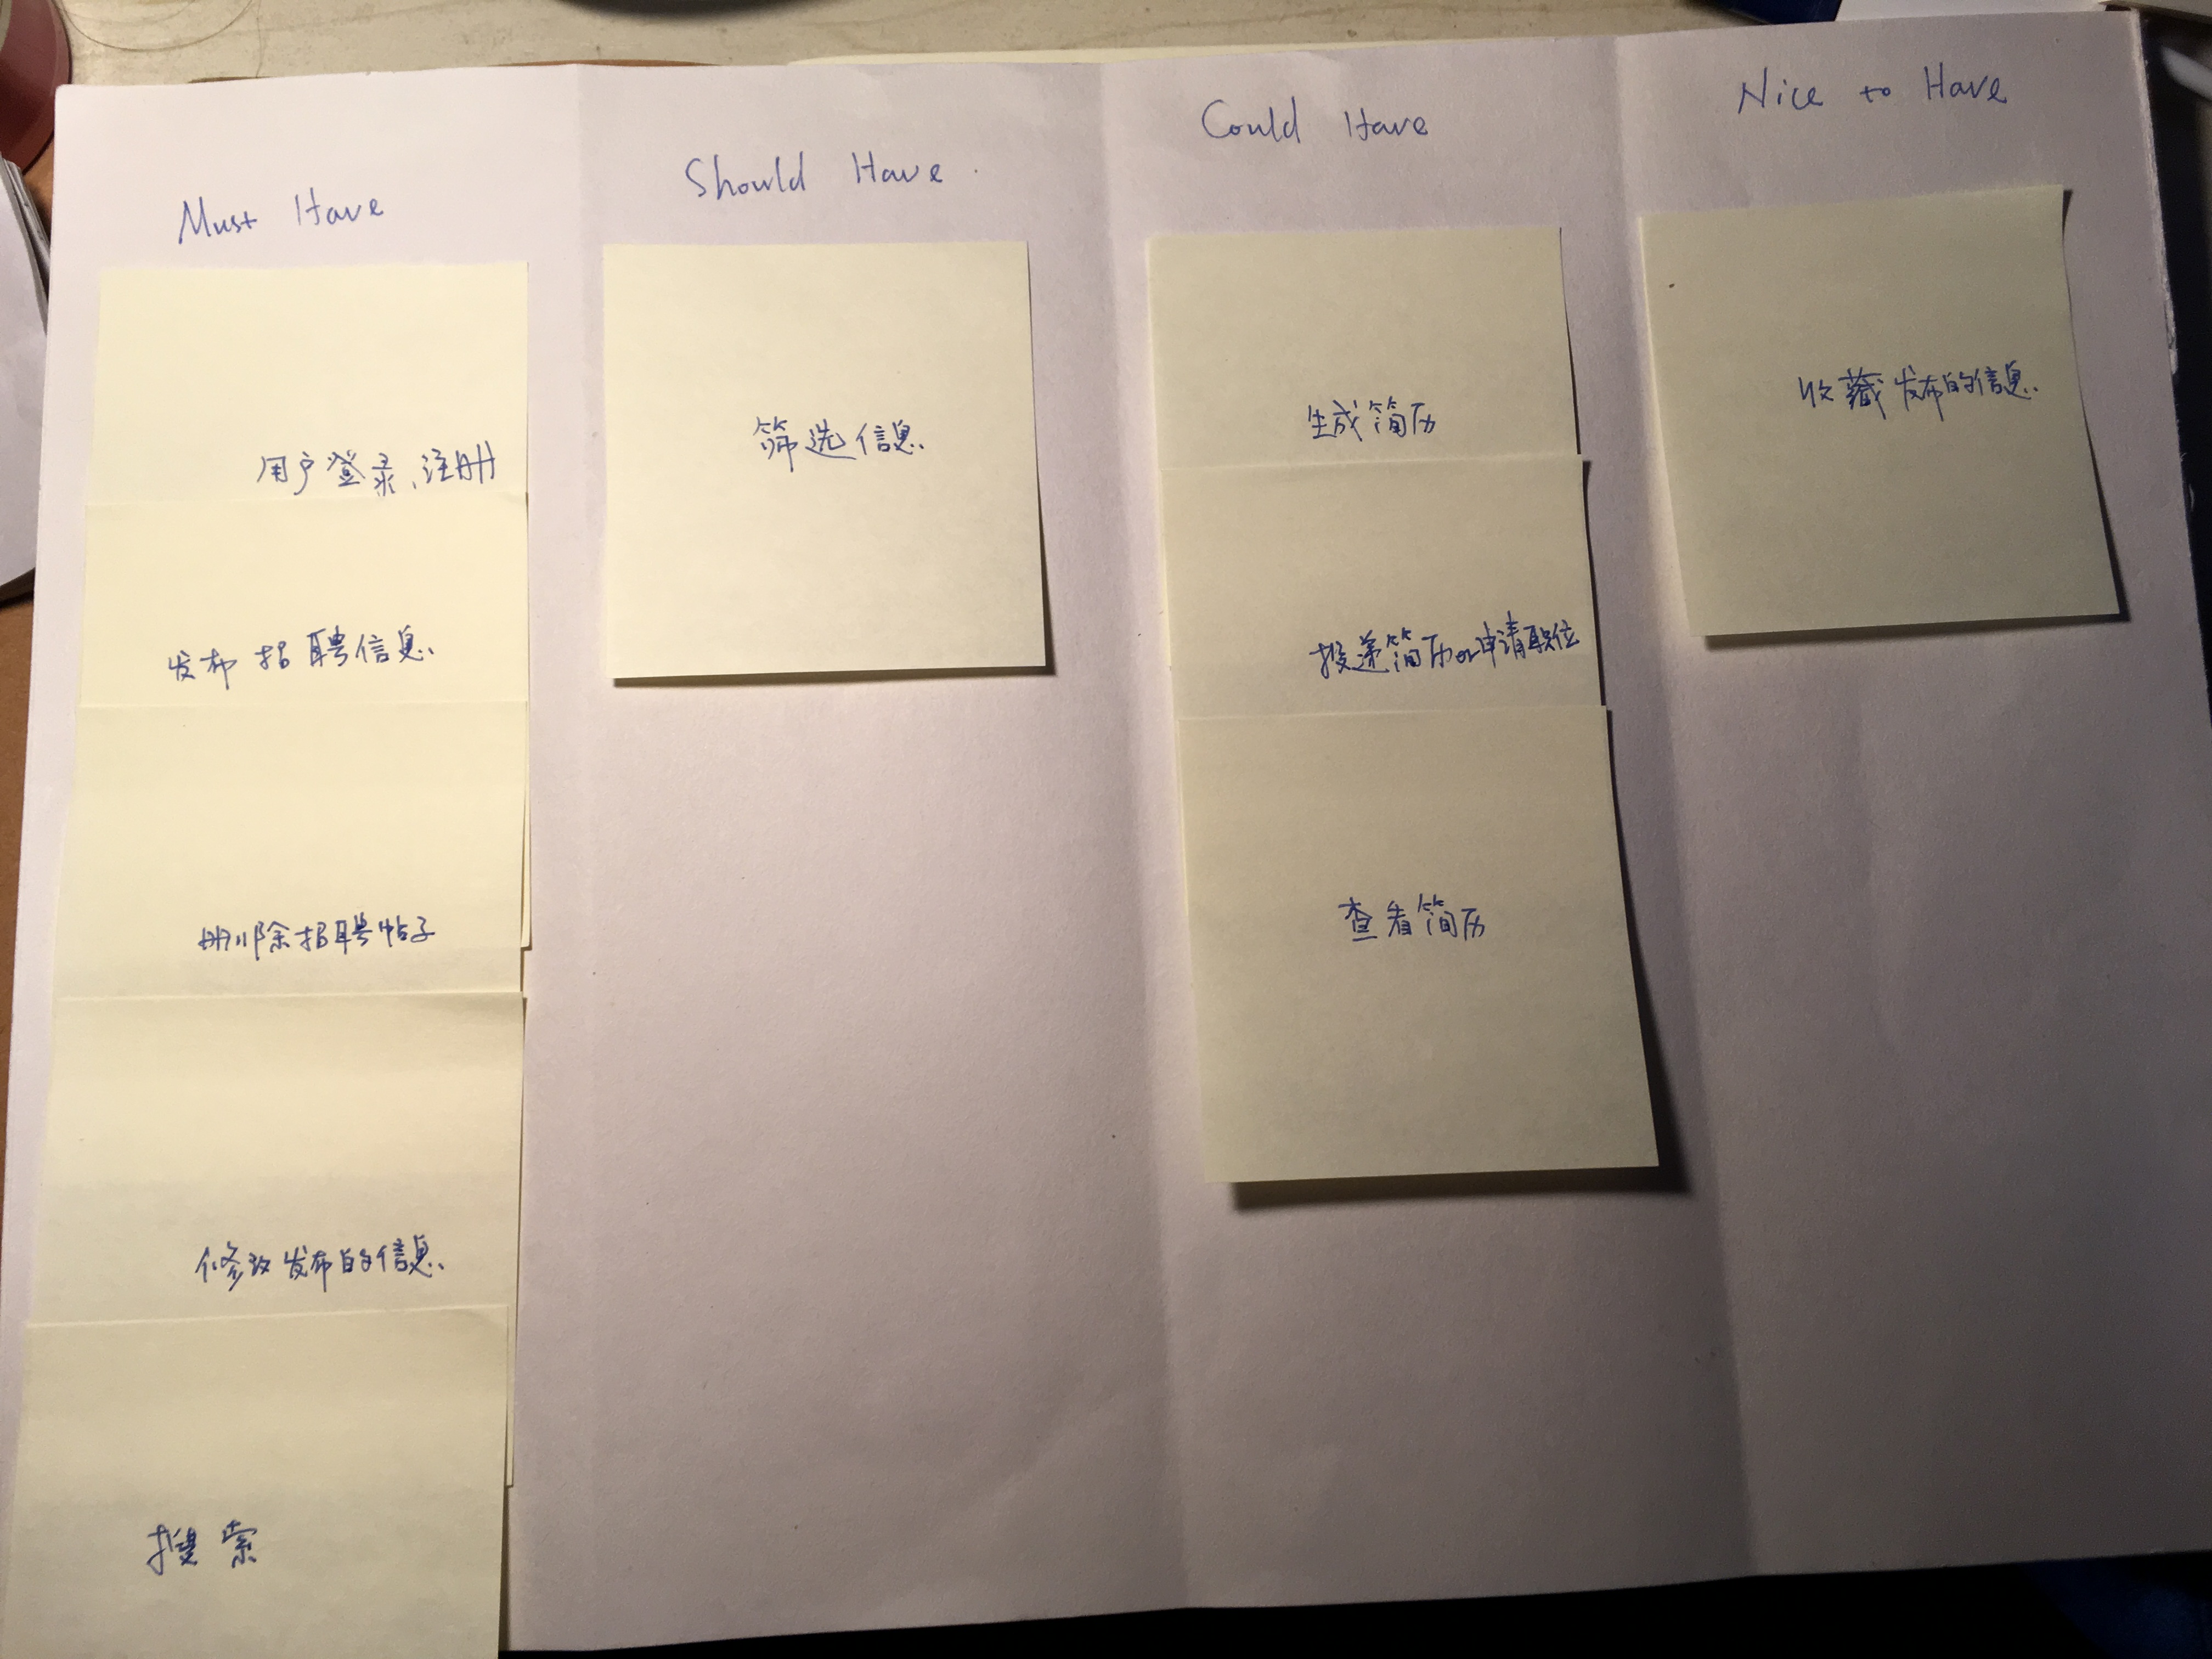 Must Have
用户登录、注册
发布招聘信息
删除招聘帖子
修改发布的信息
搜索
Should Have.
筛选信息
Could Have
生成简历
投递简历or申请职位
查看简历
Nice to Have
收藏发布的信息